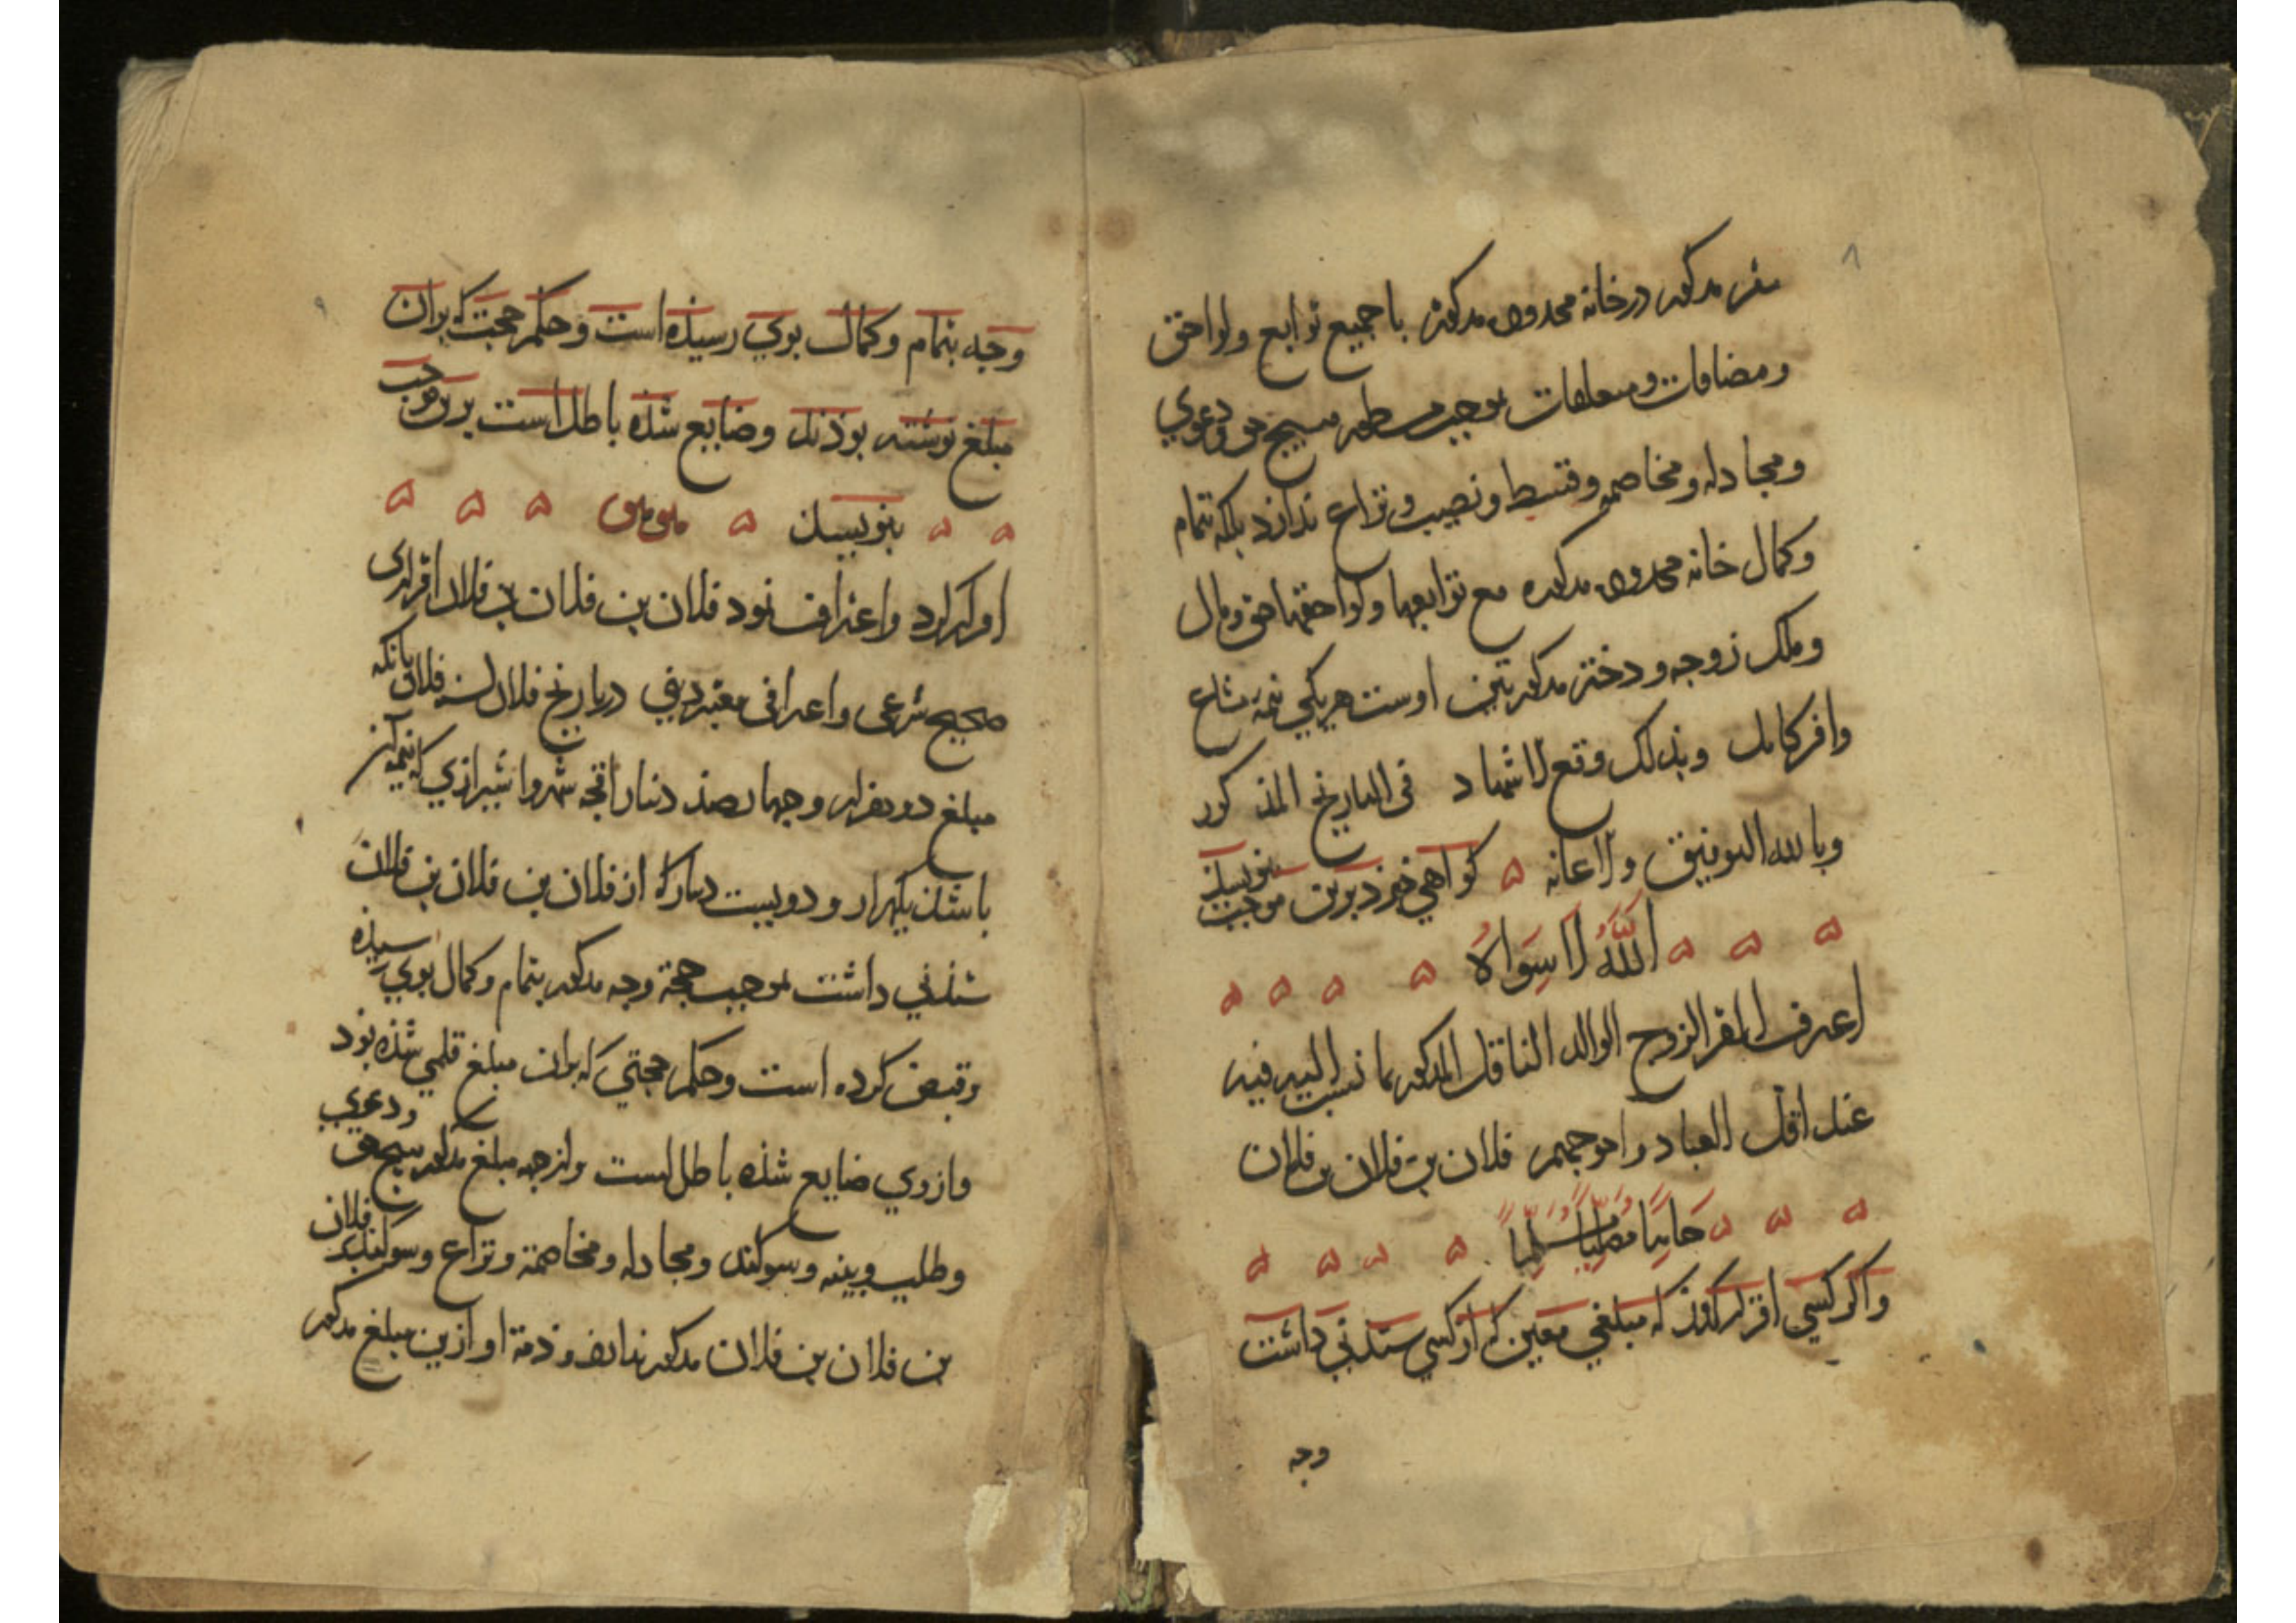 ۸
مقر مذکور در خانه محدوده مذکوره با جمیع توابع ولواحق
ومضافات ومتعلقات بموجب مسطور هیچ حق ودعوی
ومجادله ومخاصمه وقسط ونصیب ونزاع ندارد بلکه تمام
وکمال خانه محدوده مذکوره مع توابعها ولواحقها حق ومال
وملک زوجه ودختر مذکورتین اوست هریکی نیمهٔ مشاع
وافر کامل وبذلک وقع الاشهاد فی التاریخ المذکور
وبالله التوفیق والاعانه ۵ کواهی خوذ برین موجب بنویسذ
۵ ۵ ۵ اَللّٰهُ لَا سِوَاهُ ۵ ۵ ۵ ۵
اعترف المقر الزوج الوالد الناقل المذکور بما نسب الیه فیه
عند اقل العباد واحوجهم فلان بن فلان بن فلان
۵ ۵ ۵ حَامِدًا مُصَلِّیًا مُسَلِّمًا ۵ ۵ ۵ ۵
واکر کسی اقرار کوذ که مبلغی معین که از کسی ستدنی داشت
وجه
۹
وجه بتمام وکمال بوی رسیذه است وحکم حجت که بران
مبلغ نوشته بوذند وضایع شذه باطل است برین موجب
۵ ۵ بنویسند ۵ ۵ ۵ ۵
اقرار کرد واعتراف نمود فلان بن فلان بن فلان اقراری
صحیح شرعی واعترافی معتبر دینی در تاریخ فلان لسنه فلان بانکه
مبلغ دو هزار وچهارصذ دینار اقجه شهروا شیرازی که نیمه آن
باشذ یکهزار و دویست دینار که از فلان بن فلان بن فلان
ستذنی داشت بموجب حجة وجه مذکور بتمام وکمال بوی رسیذه
وقبض کرده است وحکم حجتی که بران مبلغ قلمی شذه بود
وازوی ضایع شذه باطل است واز جهه مبلغ مذکور هیچ حق ودعوی
وطلب وبینه وسوکند ومجادله ومخاصمة ونزاع وسوکند بر فلان
بن فلان بن فلان مذکور ندارد وذمة او ازین مبلغ مذکور